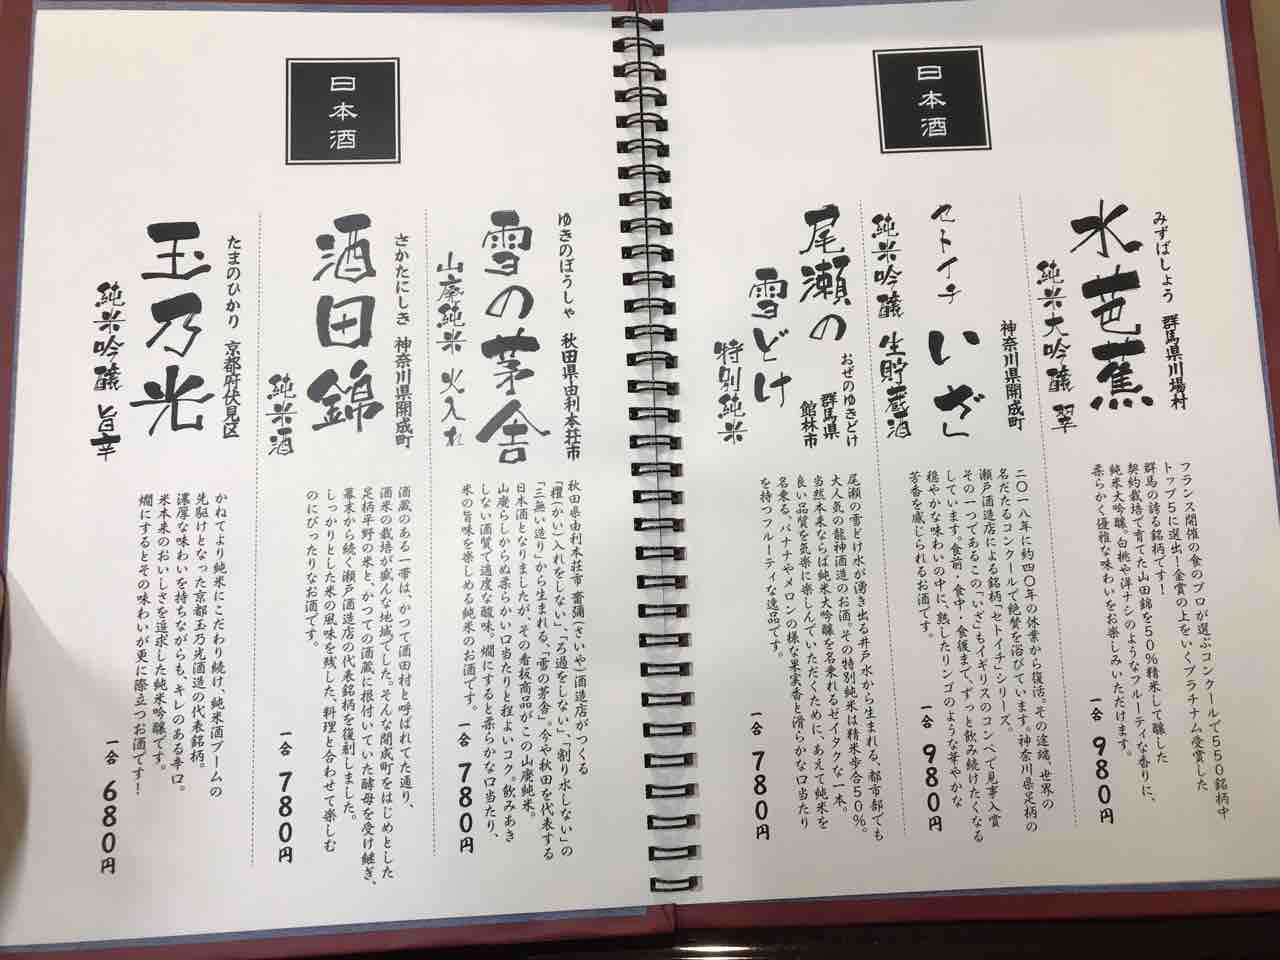 日本酒
みずばしょう 群馬県川場村
水芭蕉
純米大吟醸 翠
フランス開催の食のプロが選ぶコンクールで550銘柄中
トップ5に選出！金賞の上をいくプラチナム受賞した
群馬の誇る銘柄です！
契約栽培で育てた山田錦を50％精米して醸した
純米大吟醸。白桃や洋ナシのようなフルーティな香りに、
柔らかく優雅な味わいをお楽しみいただけます。
一合 980円
神奈川県開成町
セトイチ いざ」
純米吟醸 生貯蔵酒
二〇一八年に約四〇年の休業から復活。その途端、世界の
名だたるコンクールで絶賛を浴びています。神奈川県足柄の
瀬戸酒造店による銘柄「セトイチ」シリーズ。
その一つであるこの「いざ」もイギリスのコンペで見事入賞
しています。食前・食中・食後まで、ずっと飲み続けたくなる
穏やかな味わいの中に、熟したリンゴのような華やかな
芳香を感じられるお酒です。
一合 980円
おぜのゆきどけ
群馬県
館林市
尾瀬の
雪どけ
特別純米
尾瀬の雪どけ水が湧き出る井戸水から生まれる、都市部でも
大人気の龍神酒造のお酒。その特別純米は精米歩合50％。
当然本来ならば純米大吟醸を名乗れるゼイタクな一本。
良い品質を気楽に楽しんでいただくために、あえて純米を
名乗る、バナナやメロンの様な果実香と滑らかな口当たり
を持つフルーティな逸品です。
一合 780円
日本酒
ゆきのぼうしゃ 秋田県由利本荘市
雪の茅舎
山廃純米 火入れ
秋田県由利本荘市齋彌(さいや)酒造店がつくる
「櫂(かい)入れをしない」、「ろ過をしない」、「割り水しない」の
「三無い造り」から生まれる、「雪の茅舎」。今や秋田を代表する
日本酒となりましたが、その看板商品がこの山廃純米。
山廃らしからぬ柔らかい口当たりと程よいコク。飲みあき
しない酒質で適度な酸味。燗にすると柔らかな口当たり、
米の旨味を楽しめる純米のお酒です。
一合 780円
さかたにしき 神奈川県開成町
酒田錦
純米酒
酒蔵のある一帯は、かつて酒田村と呼ばれてた通り、
酒米の栽培が盛んな地域でした。そんな開成町をはじめとした
足柄平野の米と、かつての酒蔵に根付いていた酵母を受け継ぎ、
幕末から続く瀬戸酒造店の代表銘柄を復刻しました。
しっかりとした米の風味を残した、料理と合わせて楽しむ
のにぴったりなお酒です。
一合 780円
たまのひかり 京都府伏見区
玉乃光
純米吟醸 旨辛
かねてより純米にこだわり続け、純米酒ブームの
先駆けとなった京都玉乃光酒造の代表銘柄。
濃厚な味わいを持ちながらも、キレのある辛口。
米本来のおいしさを追求した純米吟醸です。
燗にするとその味わいが更に際立つお酒です！
一合 680円